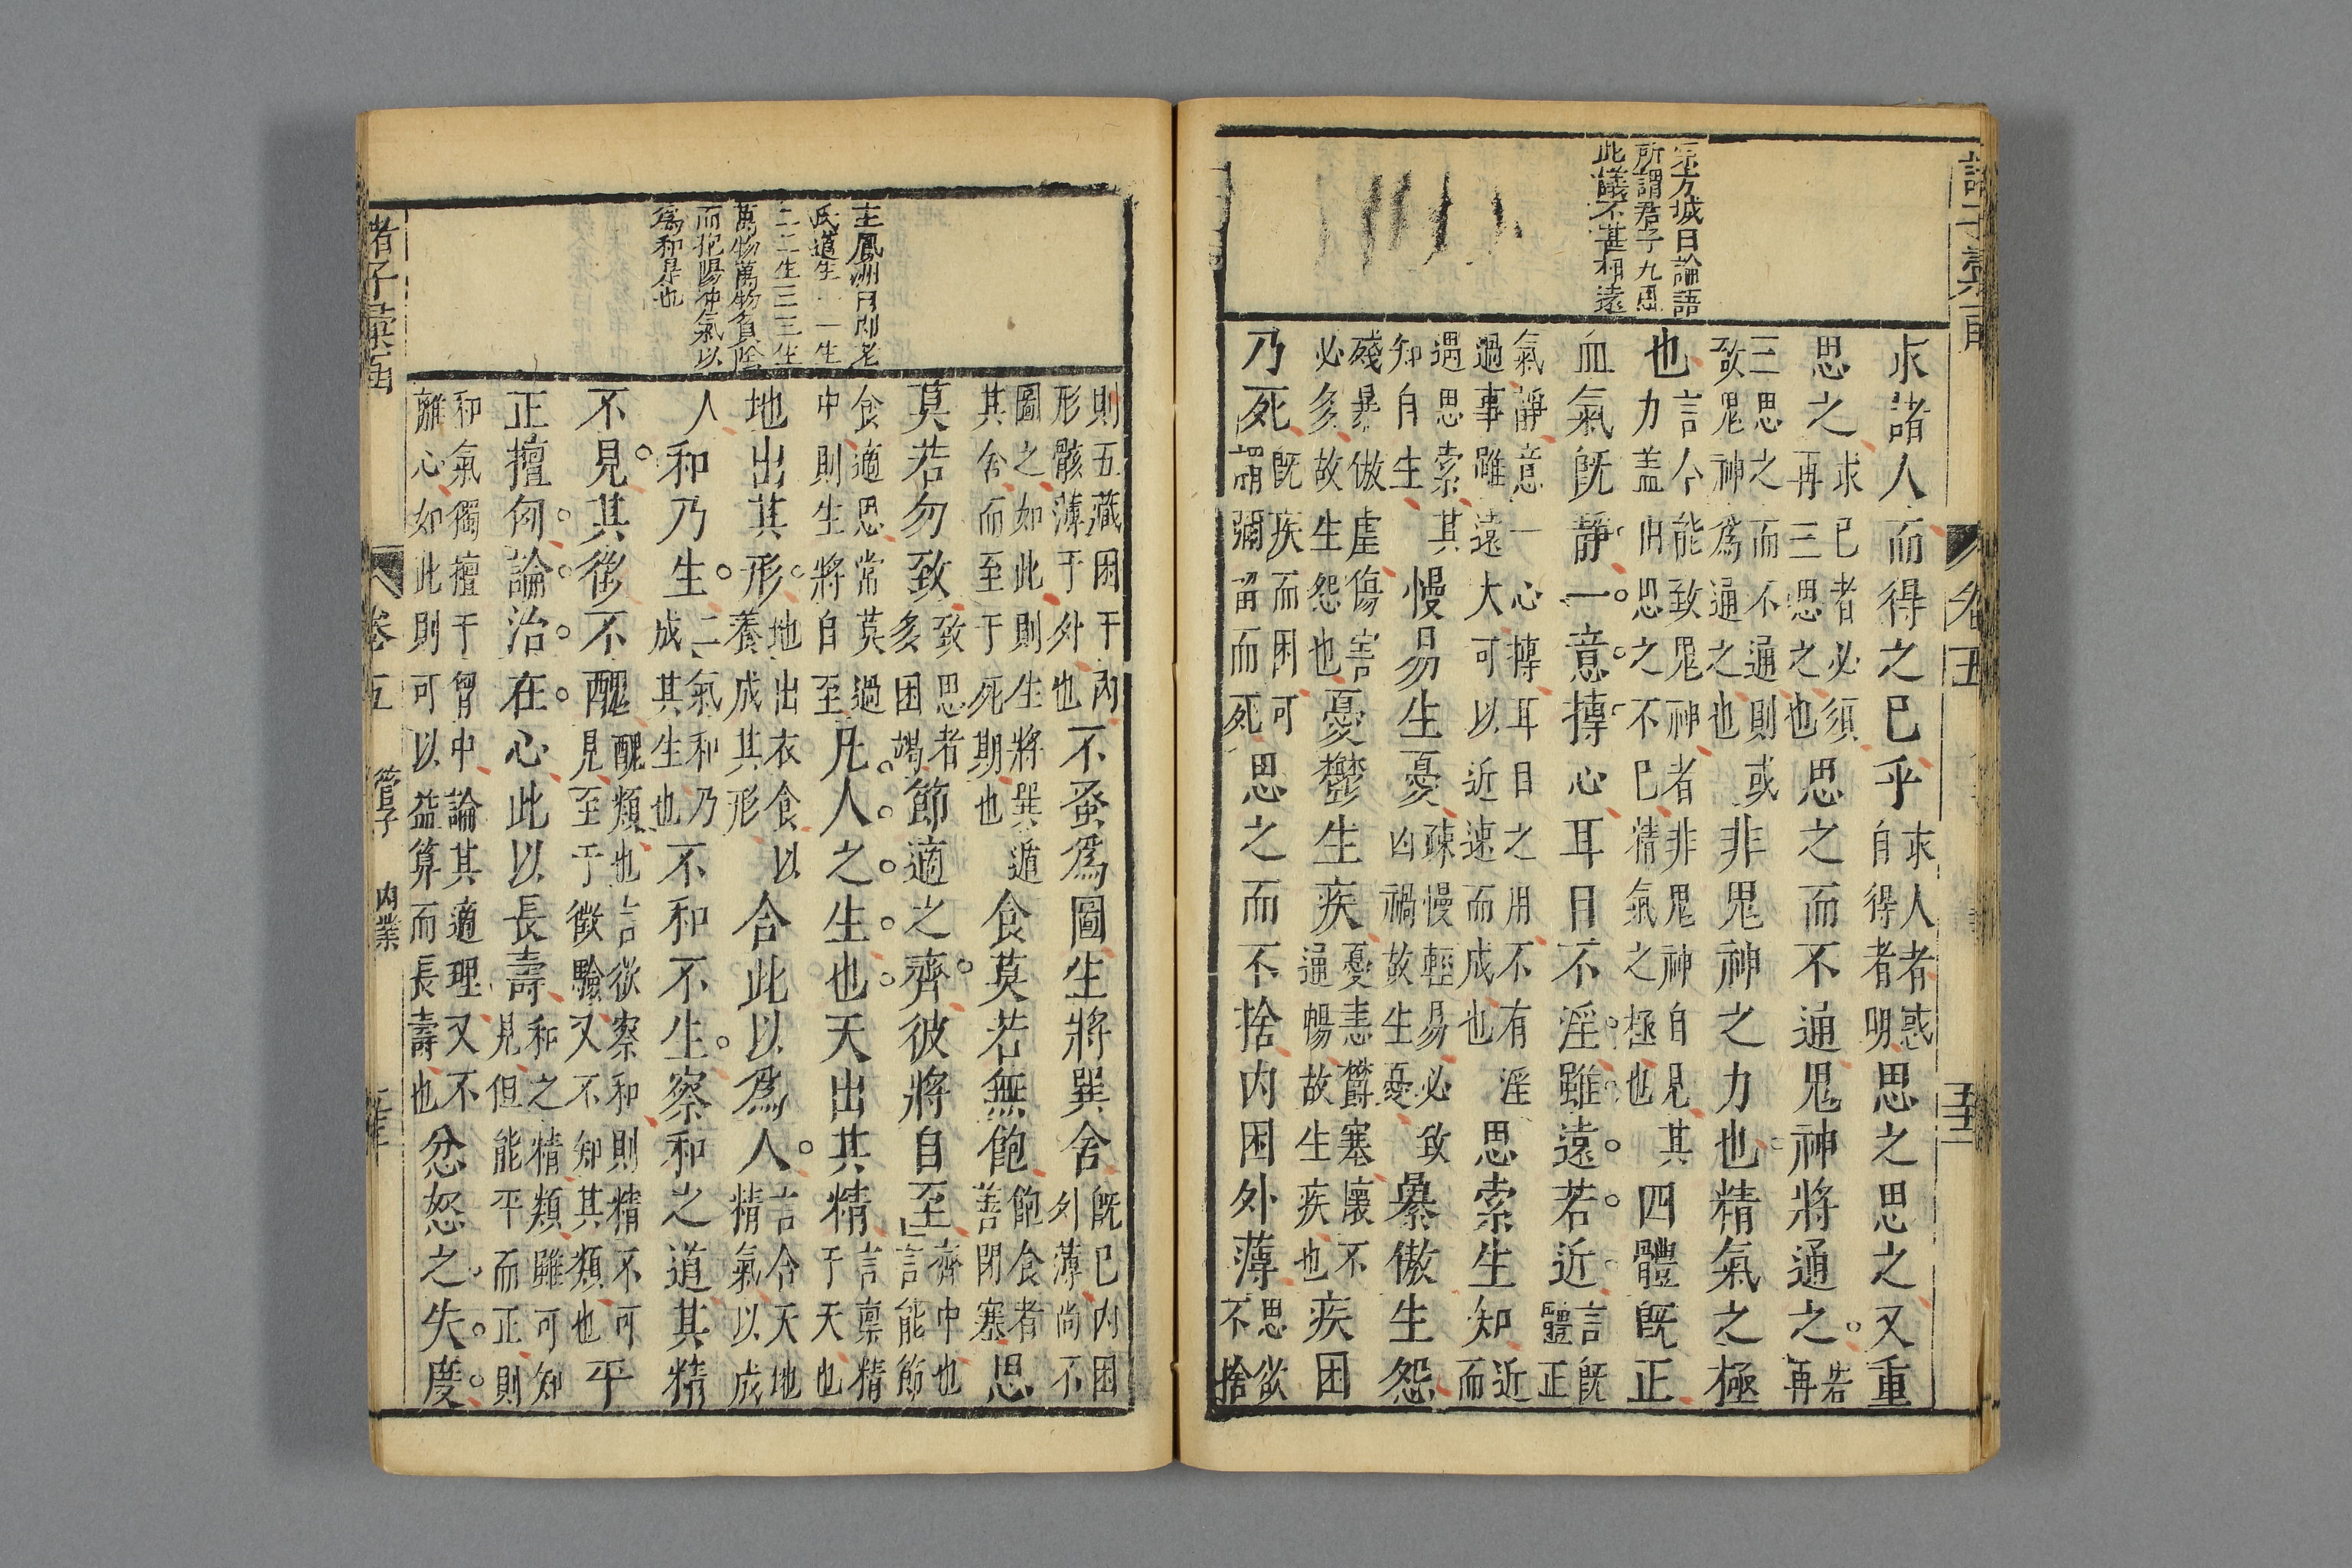 諸子彙函
卷五
宗方城曰論語
所謂君子九思
此議不甚相遠
求諸人而得之巳乎求人者惑自得者明思之思之又重
思之求已者必須再三思之也思之而不通鬼神將通之若再
三思之而不通則或致鬼神爲通之也非鬼神之力也精氣之極
也言今能致鬼神者非鬼神自見其力盖由思之不已精氣之極也四體旣正
血氣旣靜一意摶心耳目不淫雖遠若近言旣體正
氣靜意一心摶耳目之用不有淫過事雖遠大可以近速而成也思索生知近而
遇思索其知自生慢易生憂疎慢輕易必致凶禍故生憂㬥傲生怨
殘暴傲虐傷害必多故生怨也憂鬱生疾憂恚鬱塞懷不通暢故生疾也疾困
乃死旣疾而困可謂彌留而死思之而不捨内困外薄思欲不捨
王鳳洲曰即老
氏道生一一生
二二生三三生
萬物萬物負陰
而抱陽沖氣以
爲和是也
則五藏困于內形骸薄于外也不蚤爲圖生將巽舍旣已內困外薄尚不
圖之如此則生將巽遁其舍而至于死期也食莫若無飽飽食者善閉塞思
莫若勿致致思者多困竭節適之齊彼將自至齊中也言能節
食適思常莫過中則生將自至凡人之生也天出其精言禀精于天也
地出其形地出衣食以養成其形合此以爲人言合天地精氣以成
人和乃生二氣和乃成其生也不和不生察和之道其精
不見其後不醜醜類也言欲察和則精不可見至于徵驗又不知其類也平
正擅匈論治在心此以長壽和之精類雖可知見但能平而正則
和氣獨擅于胷中論其適理又不離心如此則可以益算而長壽也忿怒之失度
諸子彙函
卷五
管子
內業